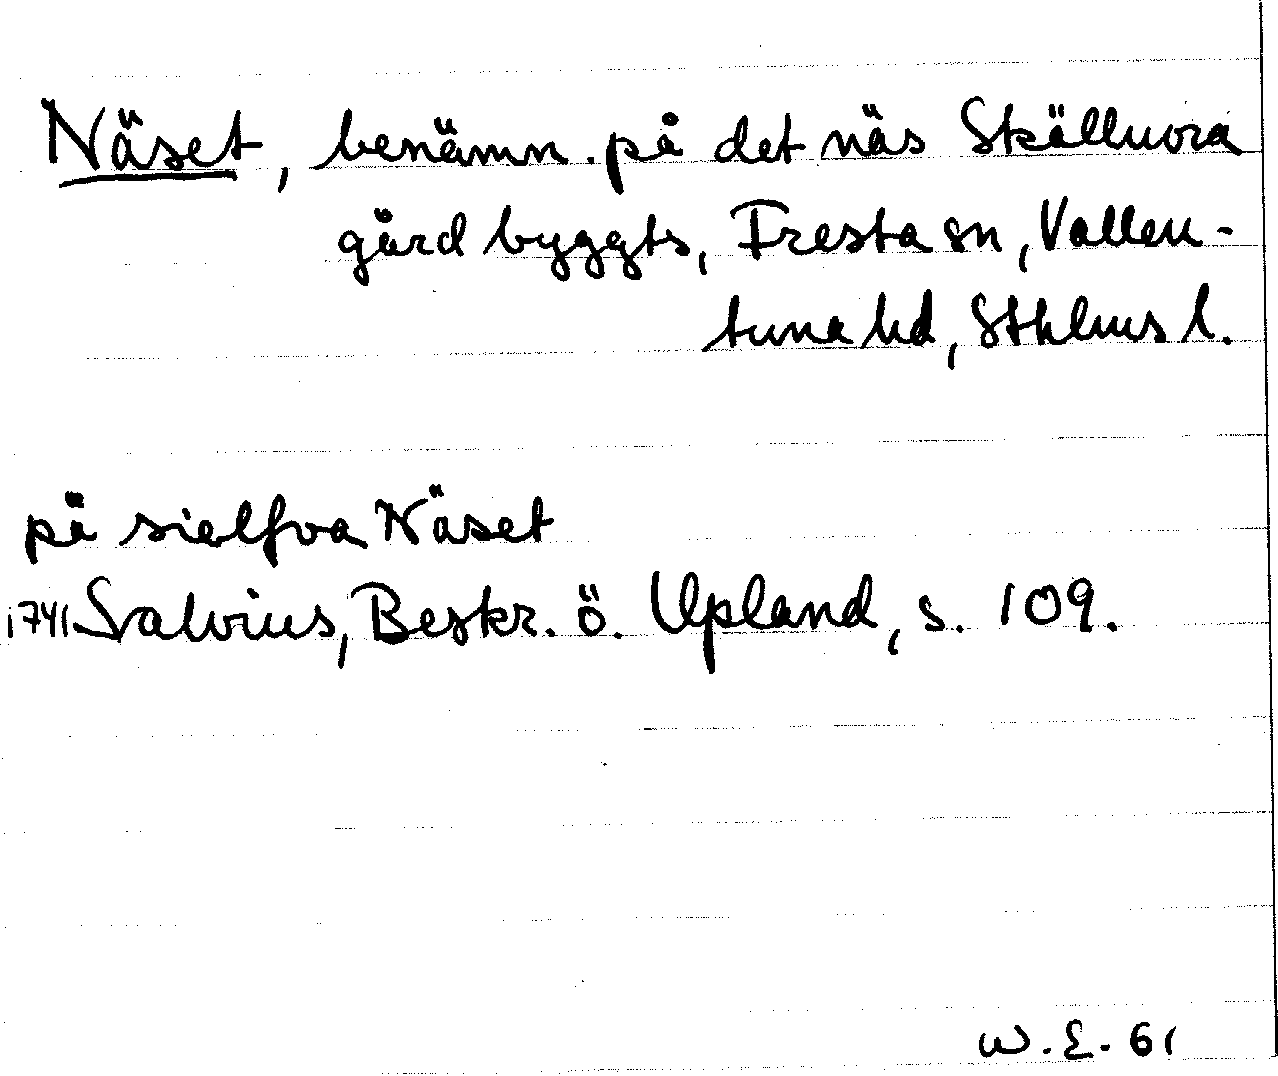 Näset, benämn. på det näs Skällnora
gård byggts, Fresta sn, Vallen-
tuna hd, Sthlms l.
på sielfva Näset
1741 Salvius, Beskr. ö. Upland, s. 109.
W.E. 61